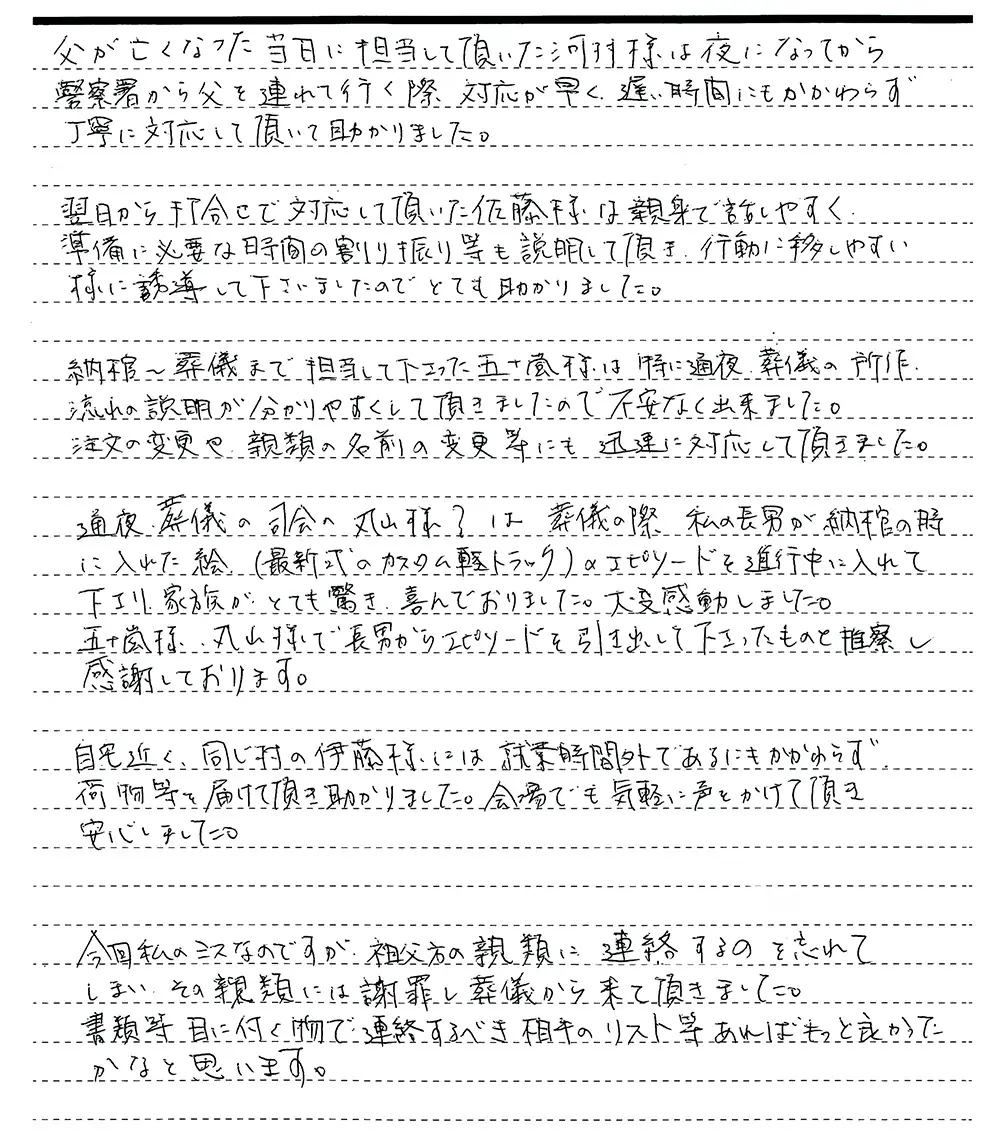 父が亡くなった当日に担当して頂いた河村様は夜になってから
警察署から父を連れて行く際、対応が早く、遅い時間にもかかわらず
丁寧に対応して頂いて助かりました。
翌日から打合せで対応して頂いた佐藤様は親身で話しやすく、
準備に必要な時間の割り振り等も説明して頂き、行動に移しやすい
様に誘導して下さいましたのでとても助かりました。
納棺~葬儀まで担当して下さった五十嵐様は特に通夜、葬儀の所作、
流れの説明が分かりやすくして頂きましたので不安なく出来ました。
注文の変更や、親類の名前の変更等にも迅速に対応して頂きました。
通夜、葬儀の司会の丸山様?は葬儀の際、私の長男が納棺の時
に入れた絵、(最新式のカスタム軽トラック)のエピソードを進行中に入れて
下さり、家族がとても驚き、喜んでおりました。大変感動しました。
五十嵐様、丸山様で長男からエピソードを引き出して下さったものと推察し
感謝しております。
自宅近く、同じ村の伊藤様には就業時間外であるにもかかわらず、
荷物等を届けて頂き助かりました。会場でも気軽に声をかけて頂き
安心しました。
今回私のミスなのですが、祖父方の親類に連絡するのを忘れて
しまい、その親類には謝罪し葬儀から来て頂きました。
書類等目に付く物で連絡するべき相手のリスト等あればもっと良かった
かなと思います。